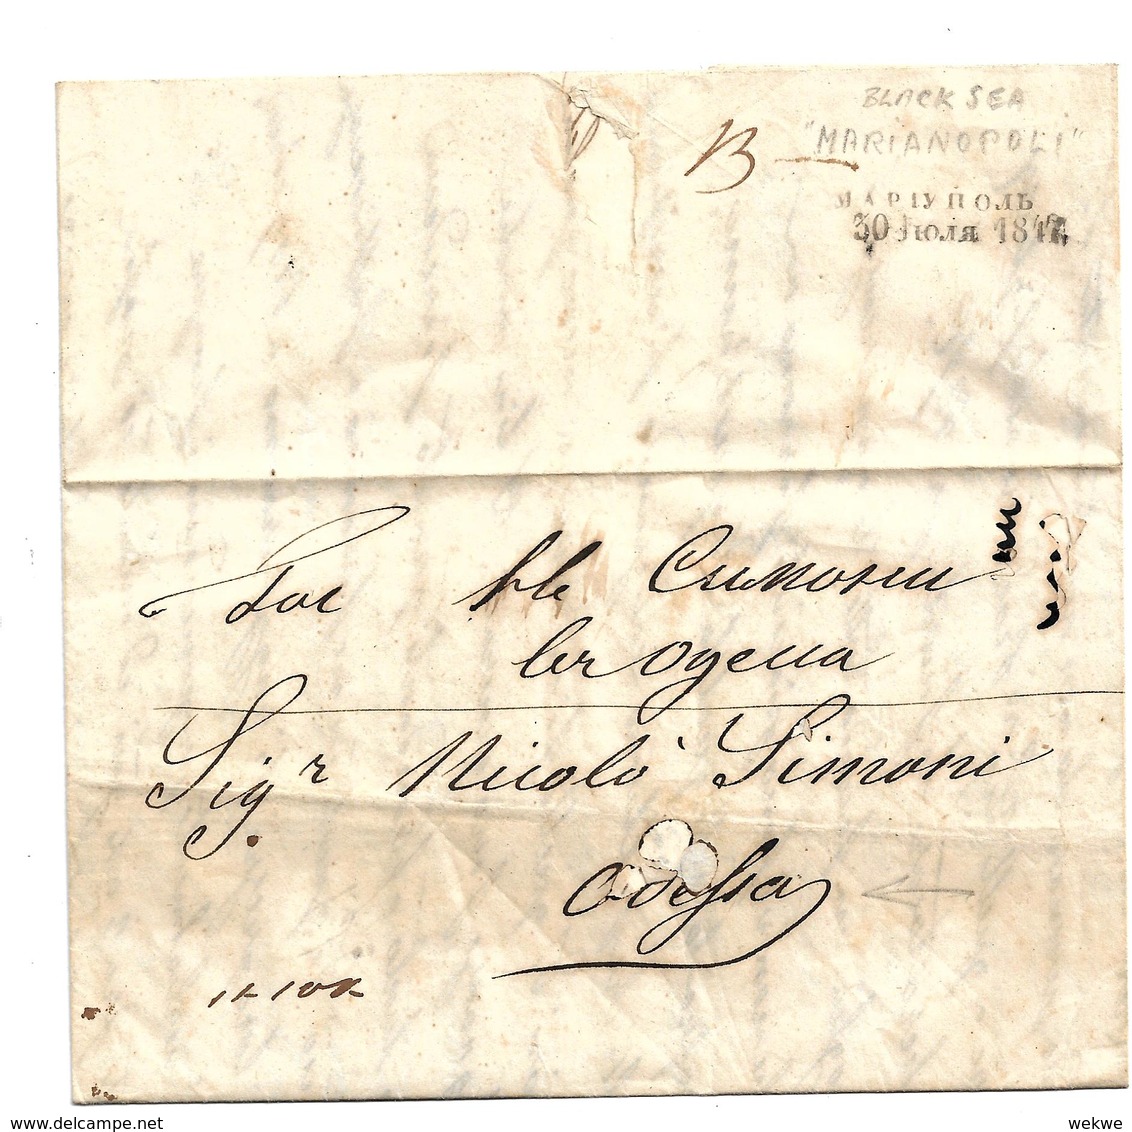 BLACK SEA
"MARIANOPOLI"
13
МАРІУПОЛЬ
30 Іюля 1847
Симони
Одесса
Sigr Nicolò Simoni
Odessa
delcampe.net
wekwe